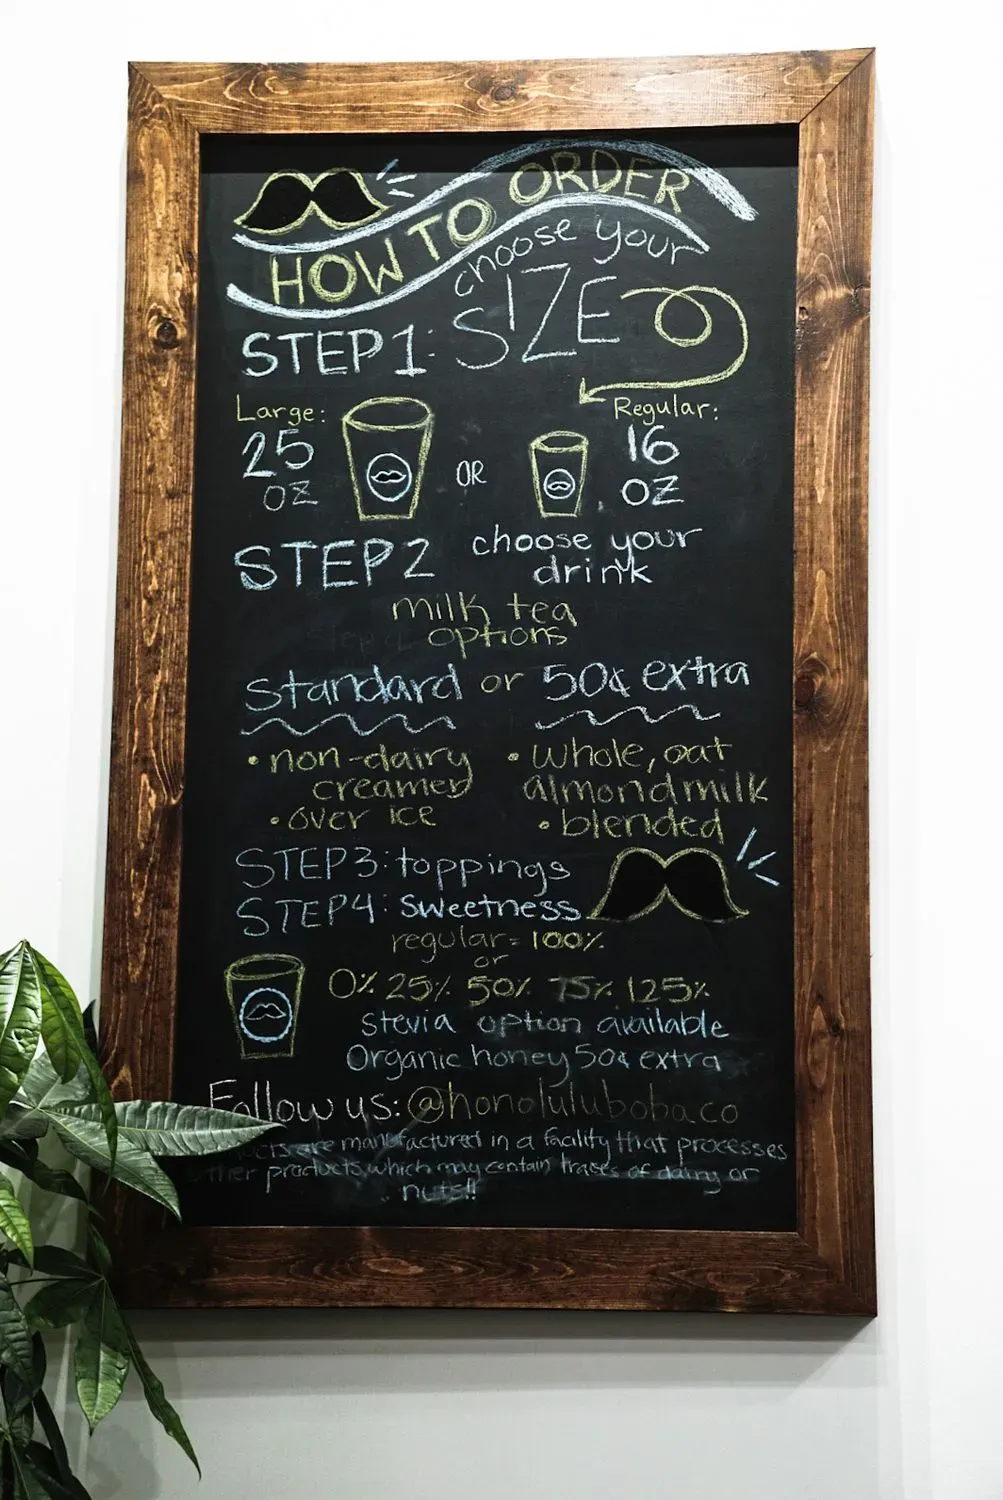 HOW TO ORDER
STEP 1: choose your SIZE
Large: 25 OZ
OR
Regular: 16 OZ
STEP 2 choose your drink
milk tea
options
Standard or 50¢ extra
• non-dairy creamer
• over ice
• whole, oat almond milk
• blended
STEP 3: toppings
STEP 4: sweetness
regular = 100%
or
0% 25% 50% 75% 125%
stevia option available
Organic honey 50¢ extra
Follow us: @honolulubobaco
are manufactured in a facility that processes
products, which may contain traces of dairy or
nuts!!